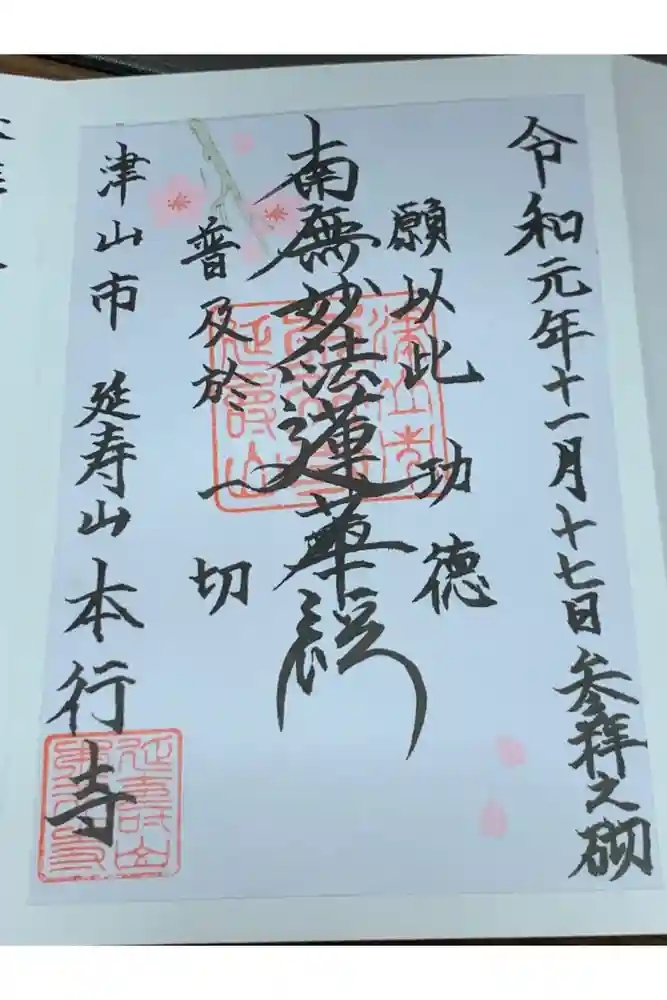 令和元年十一月十七日 参拝之砌
願以此功德
南無妙法蓮華経
普及於一切
津山市 延寿山 本行寺